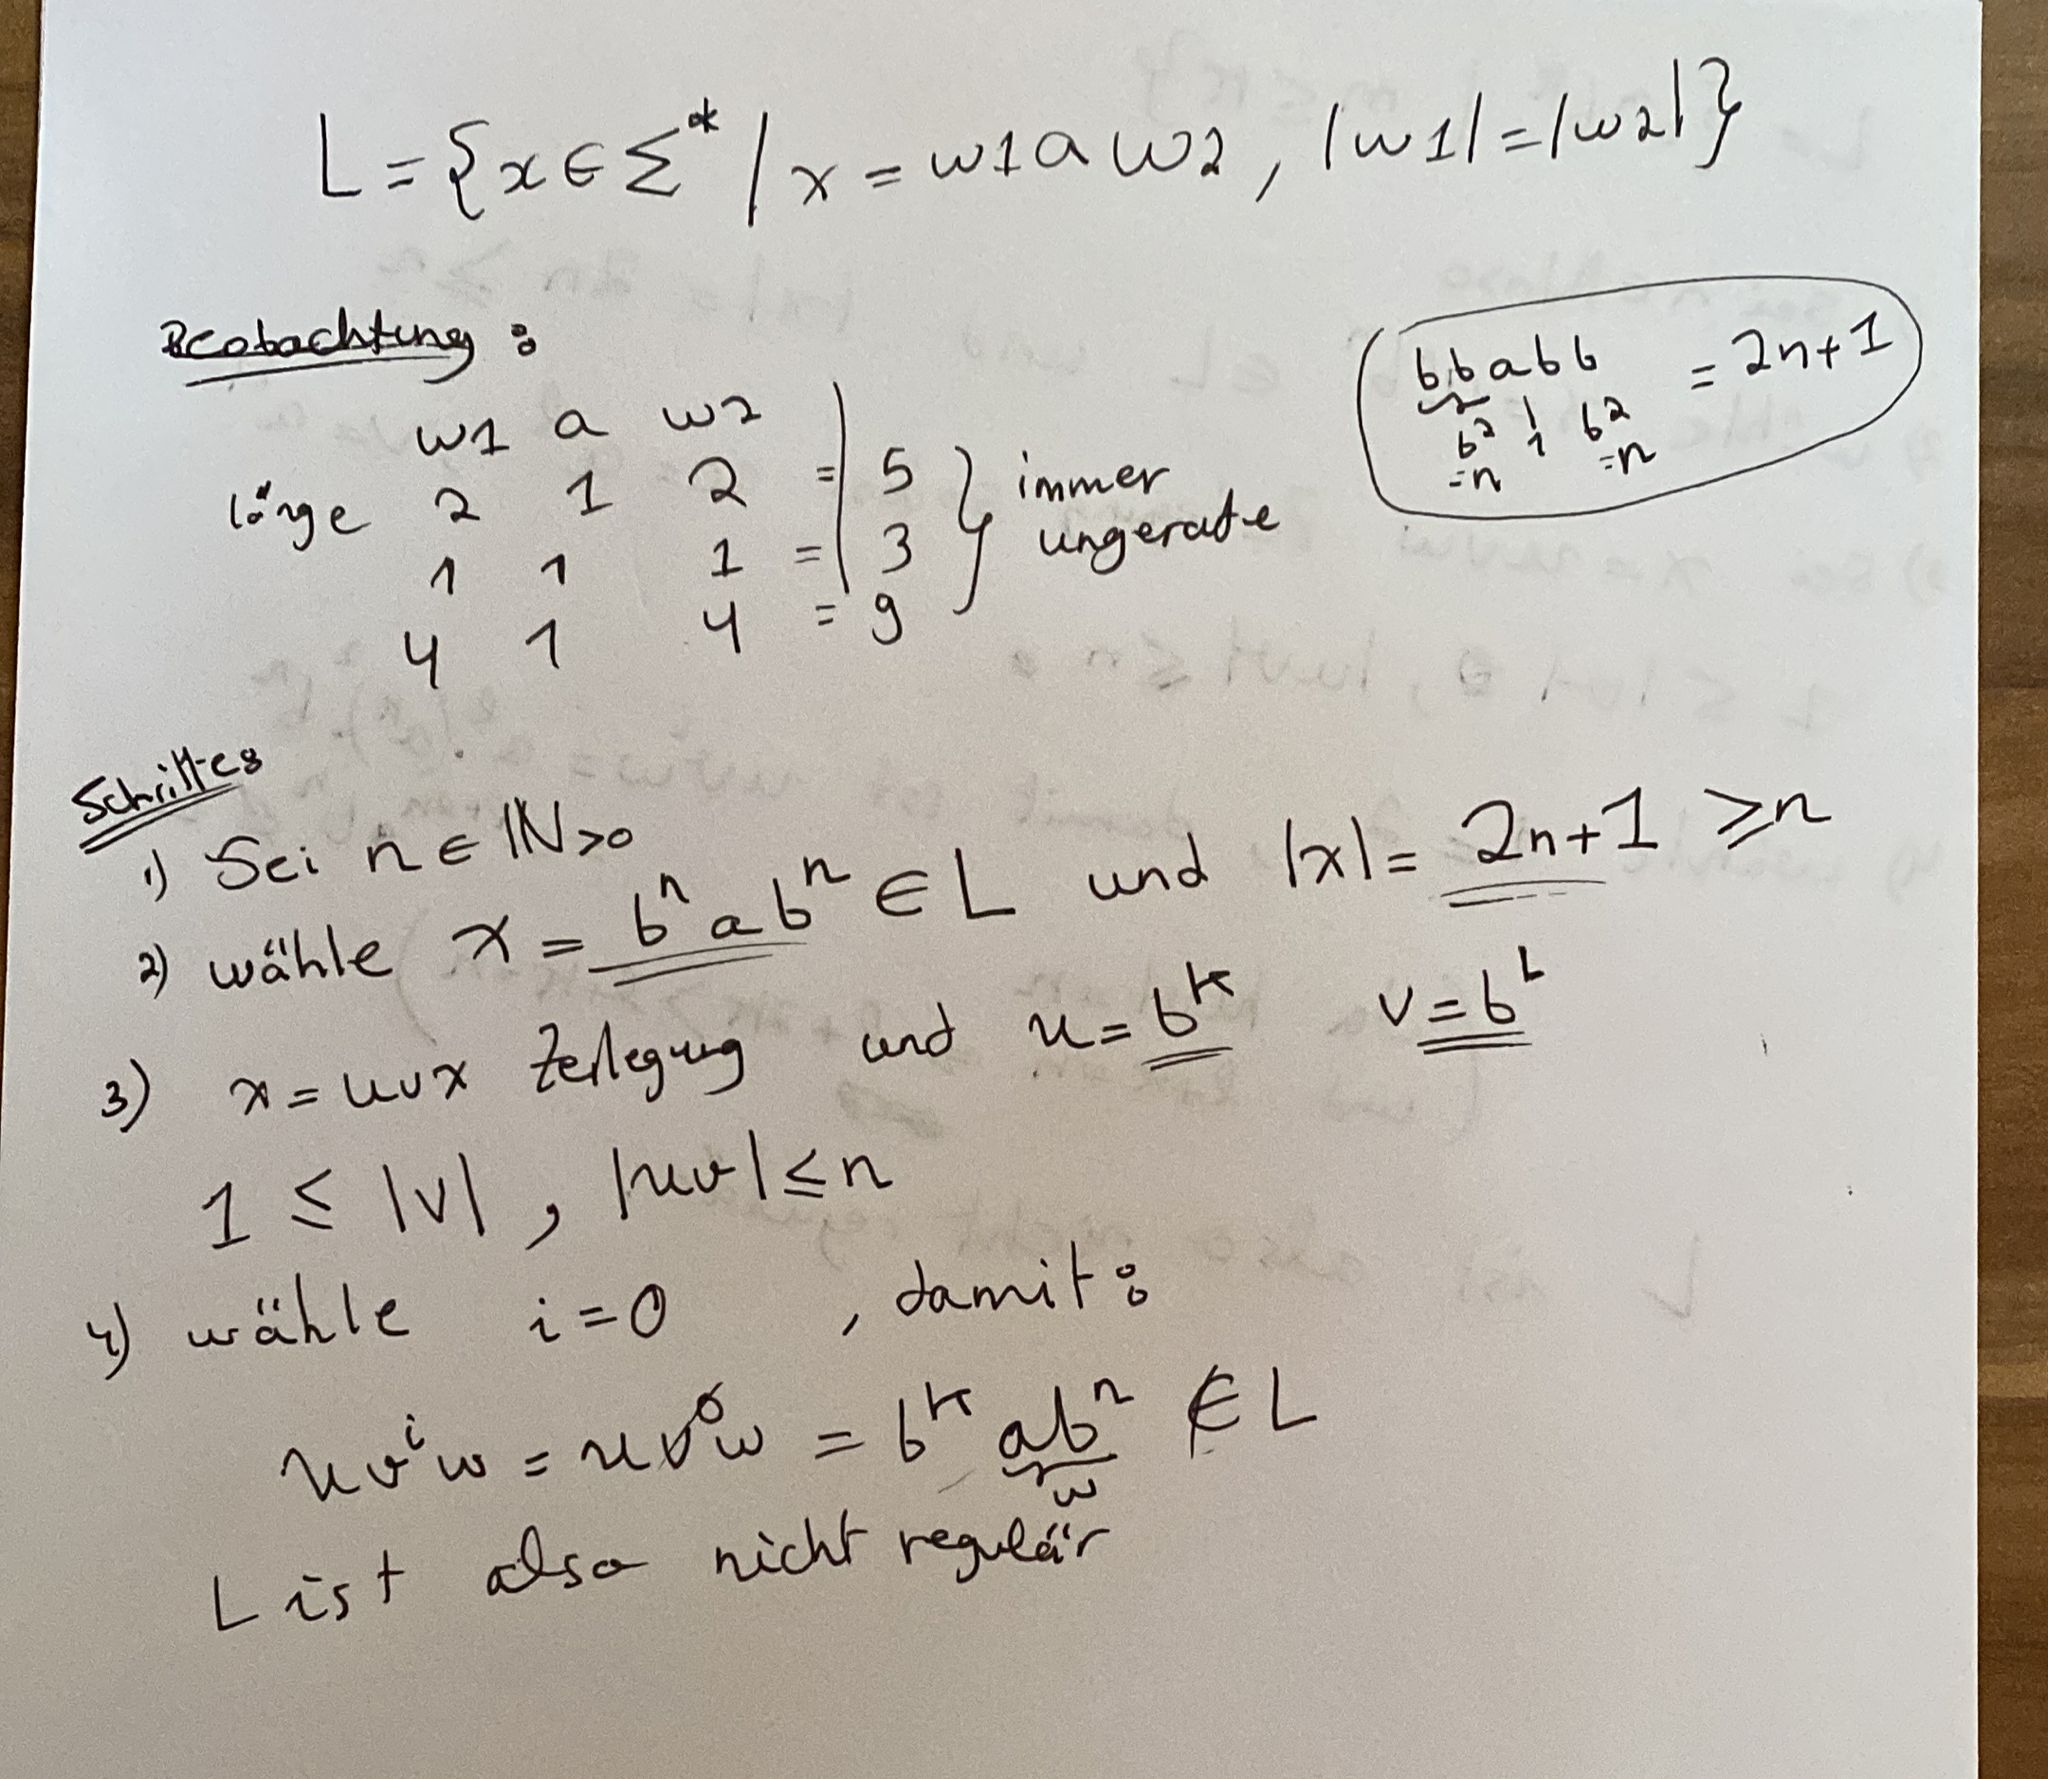 L = {x ∈ Σ* | x = w1 a w2, |w1| = |w2|}
Beobachtung:
w1 a w2
länge 2 1 2 = 5
1 1 1 = 3
4 1 4 = 9
immer
ungerade
bbabb = 2n+1
b² 1 b²
=n =n
Schritte:
1) Sei n ∈ ℕ>0
2) wähle x = bⁿabⁿ ∈ L und |x| = 2n+1 ≥ n
3) x = uvx Zerlegung und u = b^k v = b^L
1 ≤ |v|, |uv| ≤ n
4) wähle i=0, damit:
uvⁱw = uv⁰w = b^k abⁿ ∉ L
w
L ist also nicht regulär